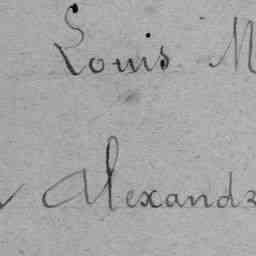 Louis M
Alexand